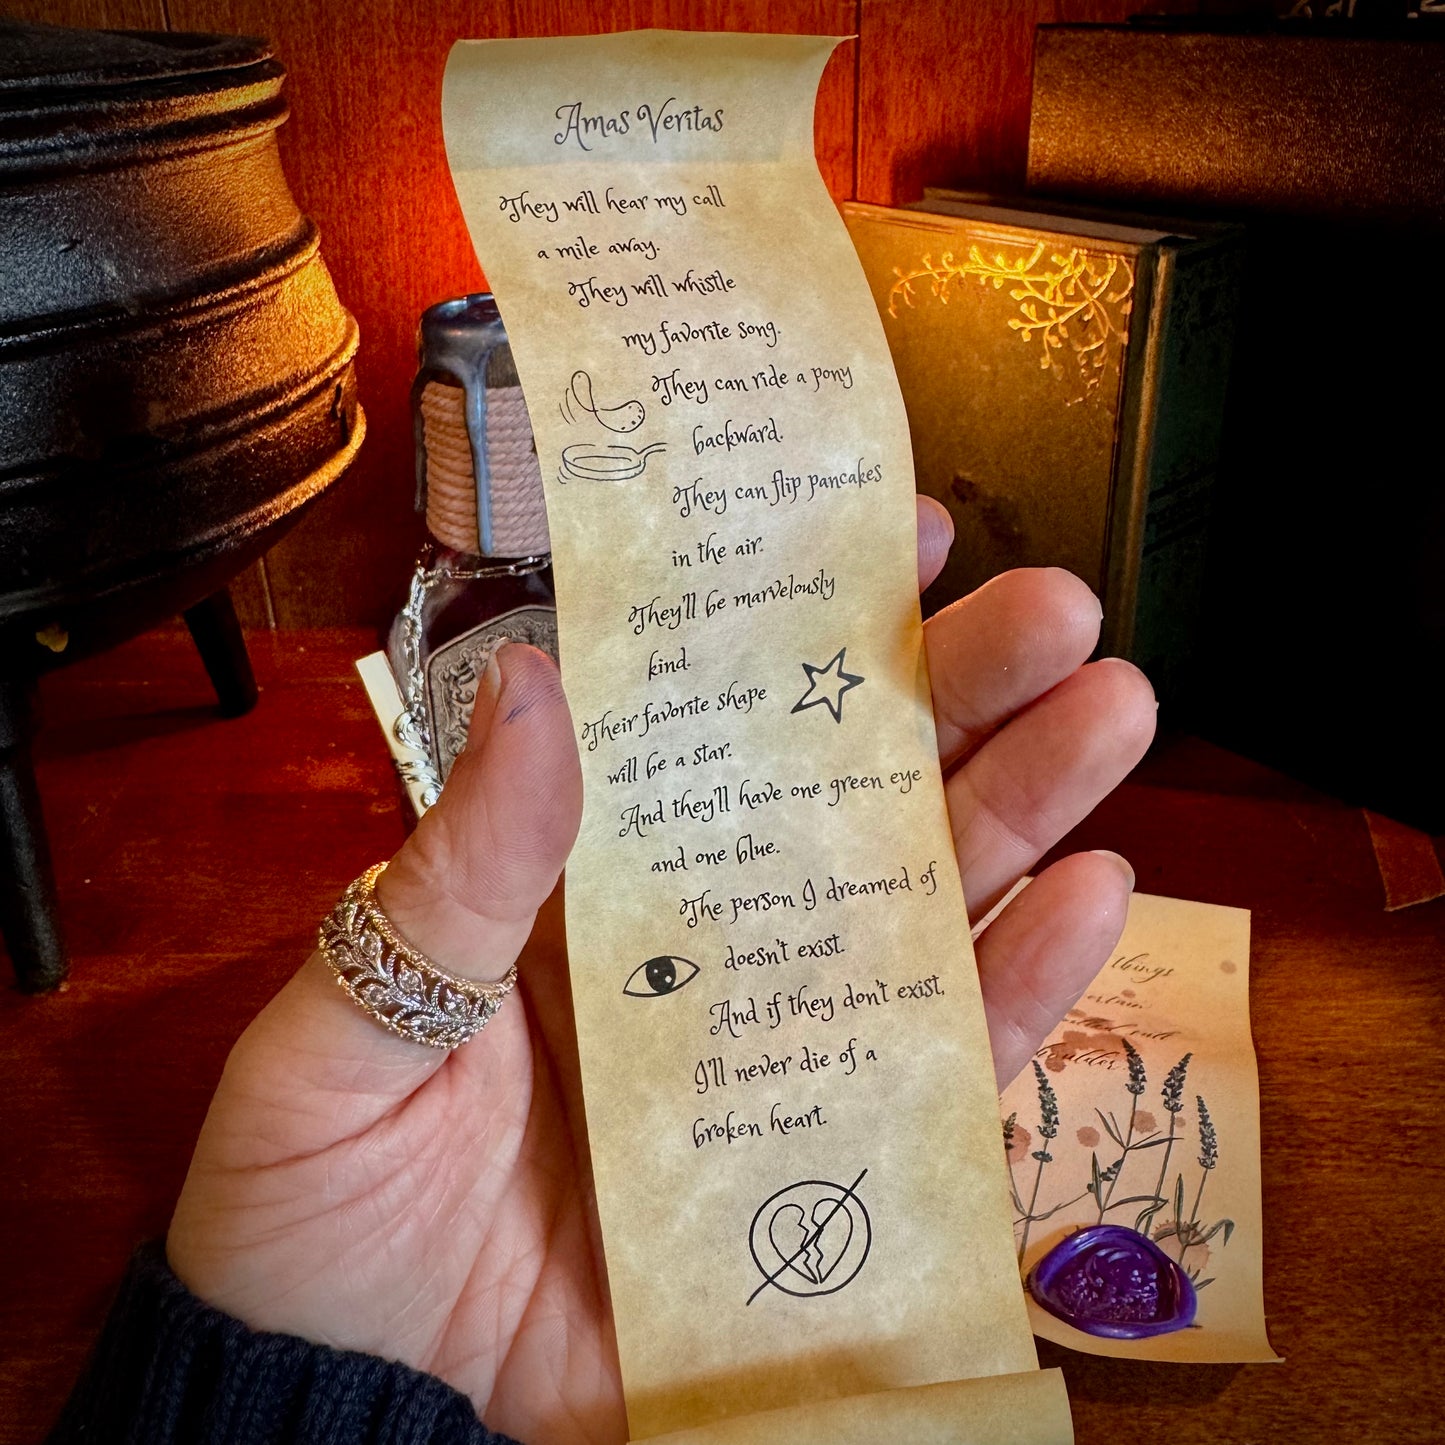 Amas Veritas
They will hear my call
a mile away.
They will whistle
my favorite song.
They can ride a pony
backward.
They can flip pancakes
in the air.
They'll be marvelously
kind.
Their favorite shape
will be a star.
And they'll have one green eye
and one blue.
The person I dreamed of
doesn't exist.
And if they don't exist,
I'll never die of a
broken heart.
things